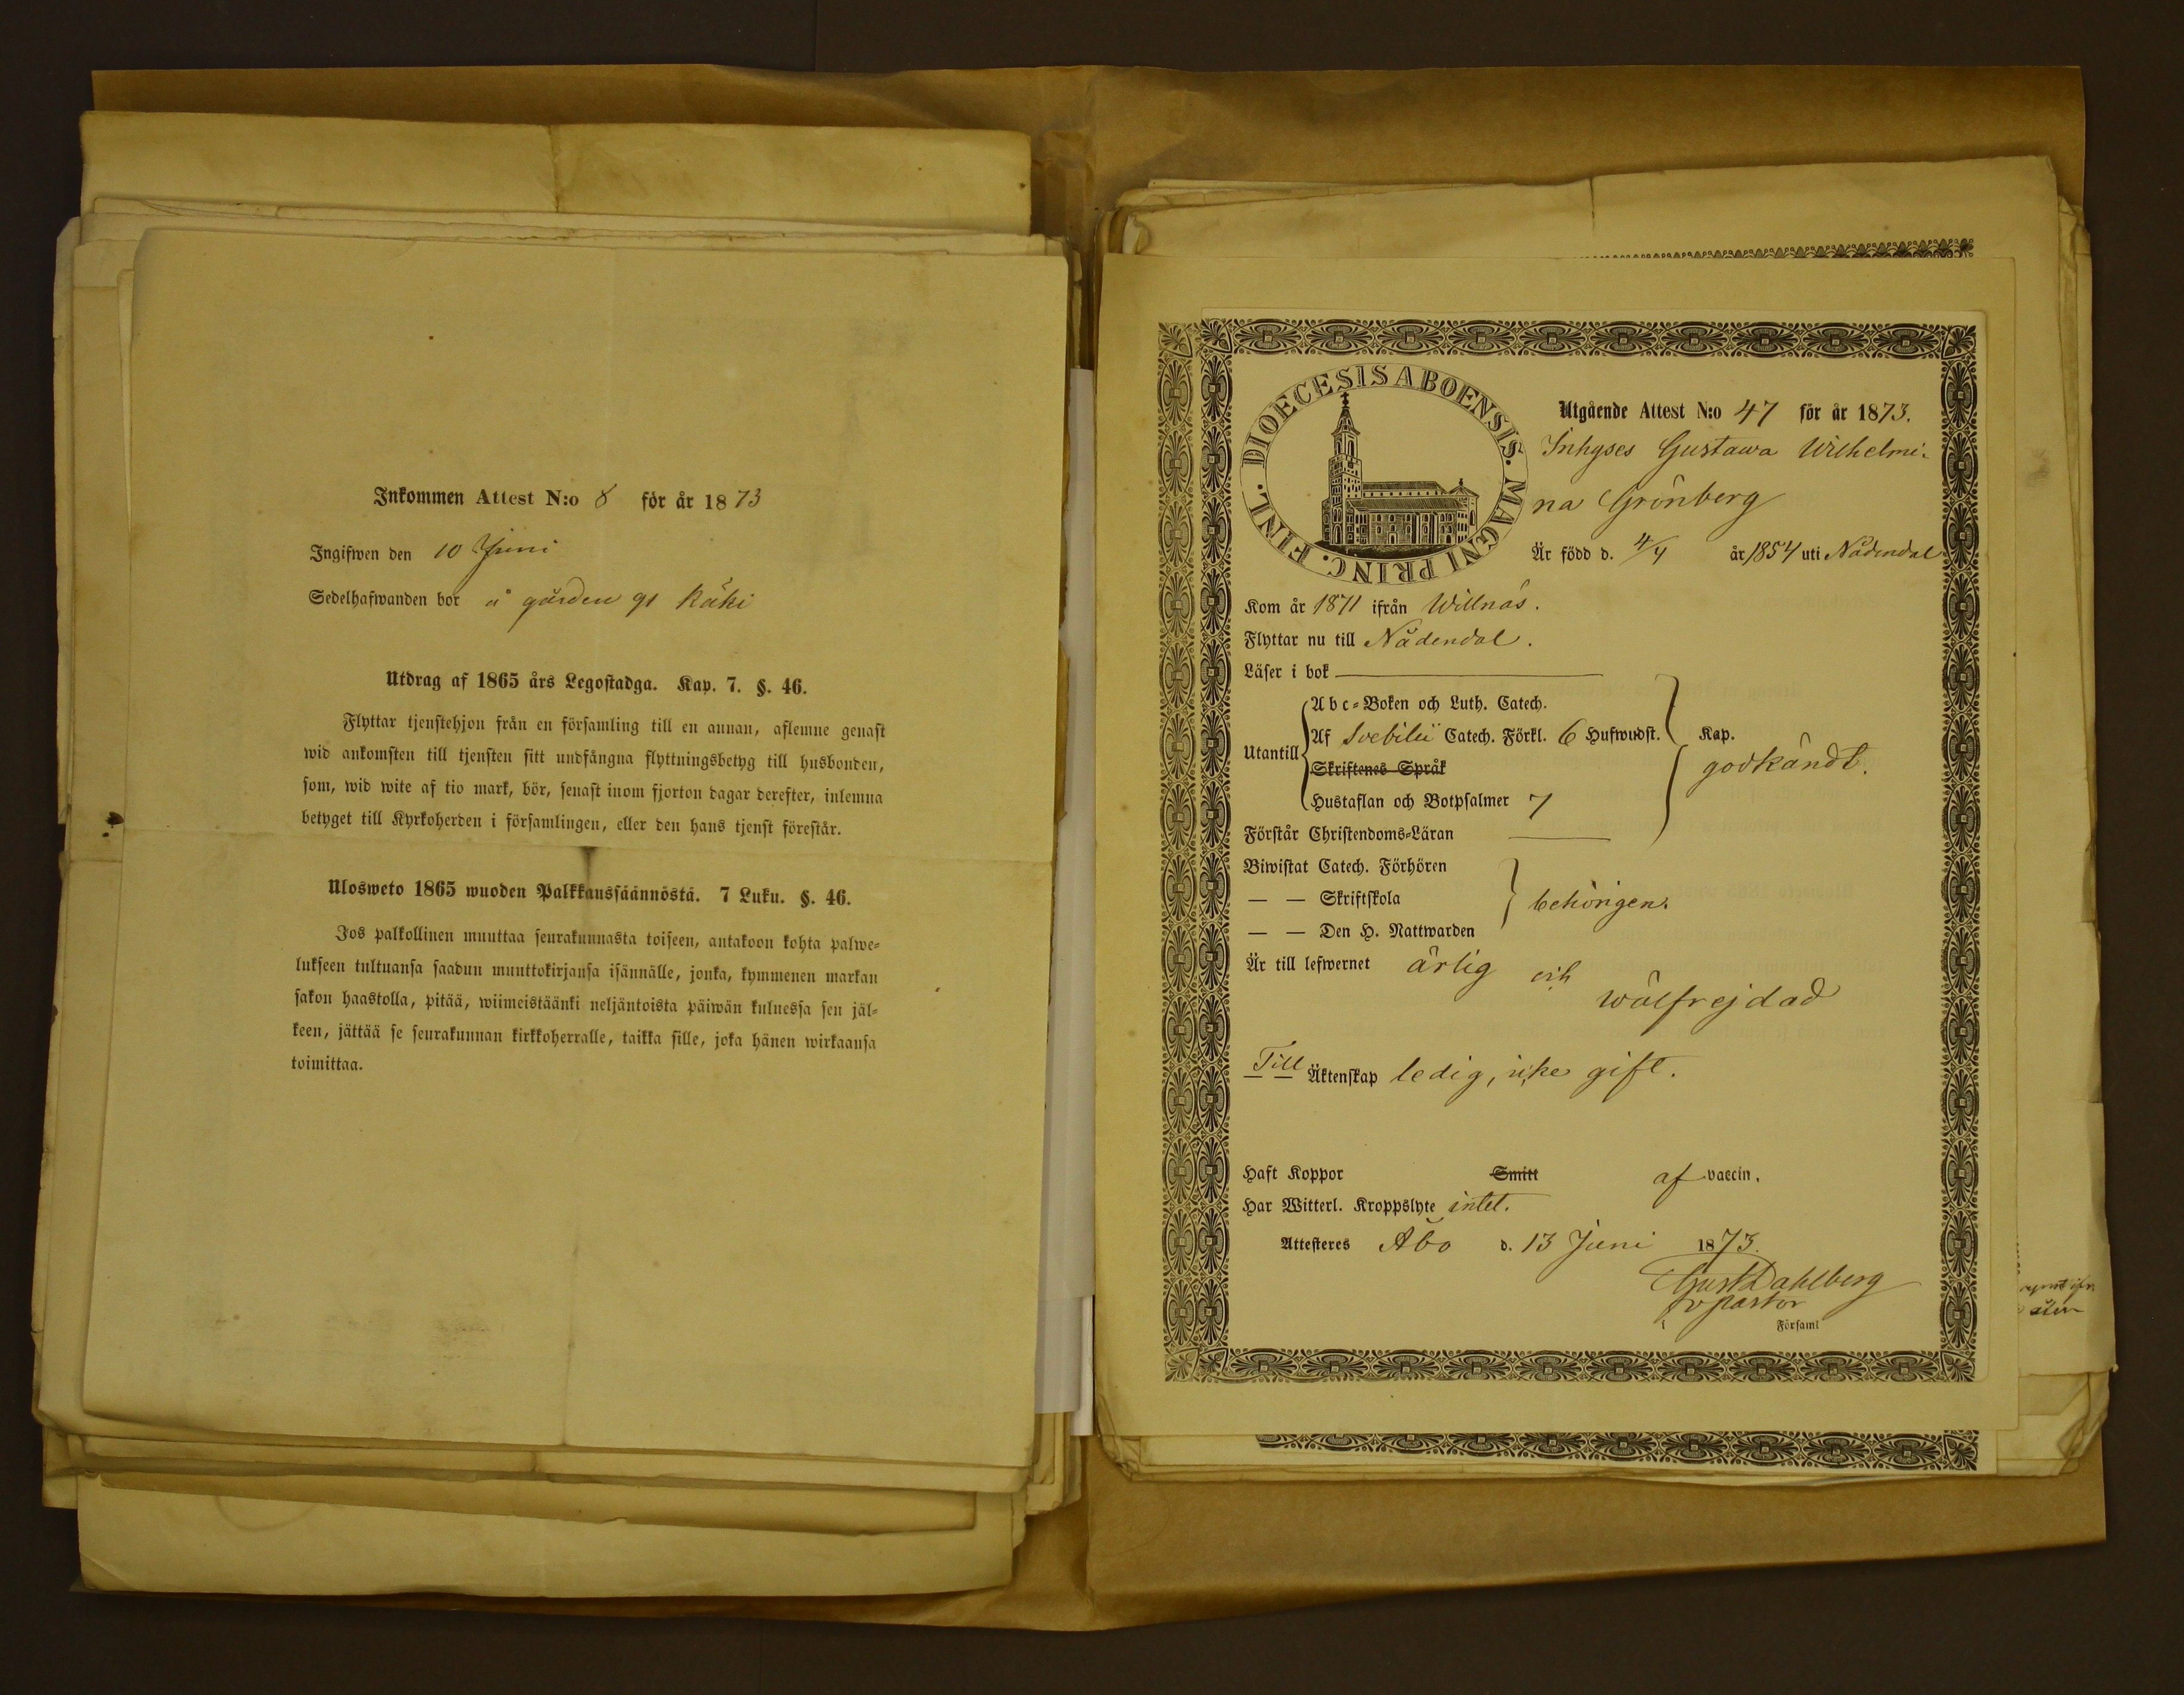 Inkommen Attest N:o 8 för år 1873
Ingifwen den 10 Juni
Sedelhafwanden bor å gården 91 Käki
Utdrag af 1865 års Legostadga. Kap. 7. §. 46.
Flyttar tjenstehjon från en församling till en annan, aflemne genast
wid ankomsten till tjensten sitt undfångna flyttningsbetyg till husbonden,
som, wid wite af tio mark, bör, senast inom fjorton dagar derefter, inlemna
betyget till Kyrkoherden i församlingen, eller den hans tjenst förestår.
Ulosweto 1865 wuoden Palkkaussäännöstä. 7 Luku. §. 46.
Jos palkollinen muuttaa seurakunnasta toiseen, antakoon kohta palwe-
lukseen tultuansa saadun muuttokirjansa isännälle, jonka, kymmenen markan
sakon haastolla, pitää, wiimeistäänki neljäntoista päiwän kuluessa sen jäl-
keen, jättää se seurakunnan kirkkoherralle, taikka sille, joka hänen wirkaansa
toimittaa.
DIOECESIS ABOENSIS. MAGNI PRINC. FINL.
Utgående Attest N:o 47 för år 1873.
Inhyses Gustawa Wilhelmi-
na Grönberg
Är född d. 4/4 år 1854 uti Nådendal
Kom år 1871 ifrån Willnäs.
Flyttar nu till Nådendal.
Läser i bok
Abc-Boken och Luth. Catech.
Utantill Af Svebilii Catech. Förkl. 6 Hufwudst. Kap.
Skriftenes Språk godkändt.
Hustaflan och Botpsalmer 7
Förstår Christendoms-Läran
Biwistat Catech. Förhören
— — Skriftskola behörigen.
— — Den H. Nattwarden
Är till lefwernet ärlig och
wälfrejdad
Till Äktenskap ledig, icke gift.
Haft Koppor Smitt af vaccin.
Har Witterl. Kroppslyte intet.
Attesteres Åbo d. 13 Juni 1873.
Gust Dahlberg
v pastor
i Församl